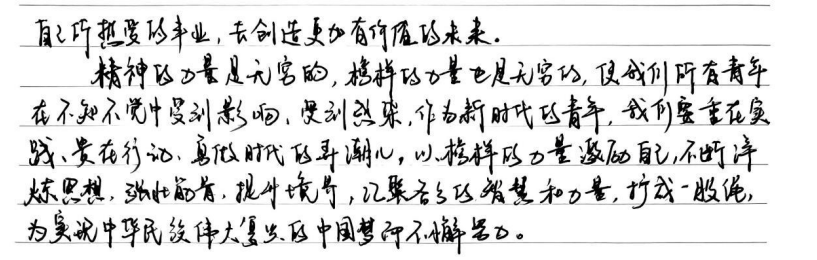 自己所热爱的事业,去创造更加有价值的未来。
精神的力量是无穷的,榜样的力量也是无穷的,使我们所有青年
在不知不觉中受到影响、受到感染,作为新时代的青年,我们要重在实
践、贵在行动、勇做时代的弄潮儿,以榜样的力量激励自己,不断淬
炼思想,强壮筋骨,提升境界,汇聚各自的智慧和力量,拧成一股绳,
为实现中华民族伟大复兴的中国梦而不懈努力。